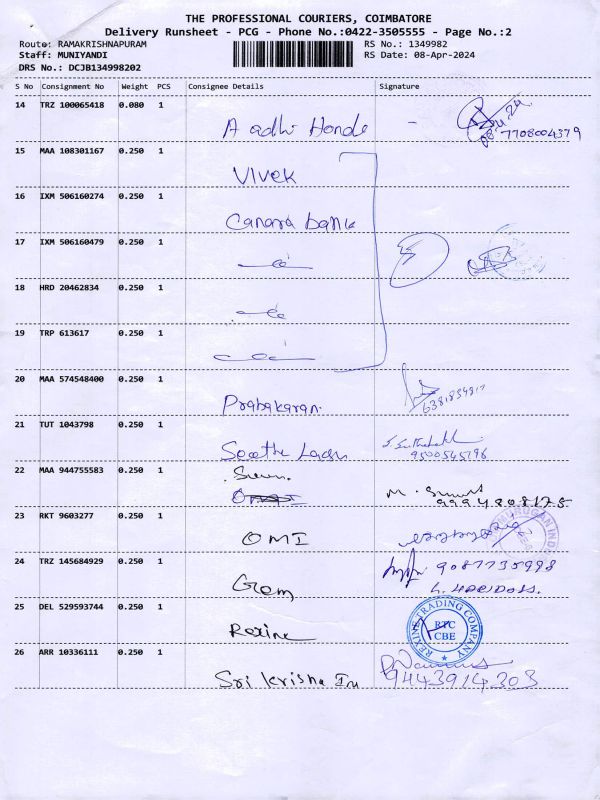 THE PROFESSIONAL COURIERS, COIMBATORE
Delivery Runsheet - PCG - Phone No.:0422-3505555 - Page No.:2
Route: RAMAKRISHNAPURAM RS No.: 1349982
Staff: MUNIYANDI RS Date: 08-Apr-2024
DRS No.: DCJB134998202
S No Consignment No Weight PCS Consignee Details Signature
14 TRZ 100065418 0.080 1 Aadhi Honda 7708004379
15 MAA 108301167 0.250 1 Vivek
16 IXM 506160274 0.250 1 Canara bank
17 IXM 506160479 0.250 1
18 HRD 20462834 0.250 1
19 TRP 613617 0.250 1
20 MAA 574548400 0.250 1 Prabakaran
21 TUT 1043798 0.250 1 9500545796
22 MAA 944755583 0.250 1 9994808175
23 RKT 9603277 0.250 1 OMI
24 TRZ 145684929 0.250 1 Gem 9087735998
25 DEL 529593744 0.250 1 Rexine REXINE TRADING COMPANY RTC CBE
26 ARR 10336111 0.250 1 Sri krisha In 9443914303